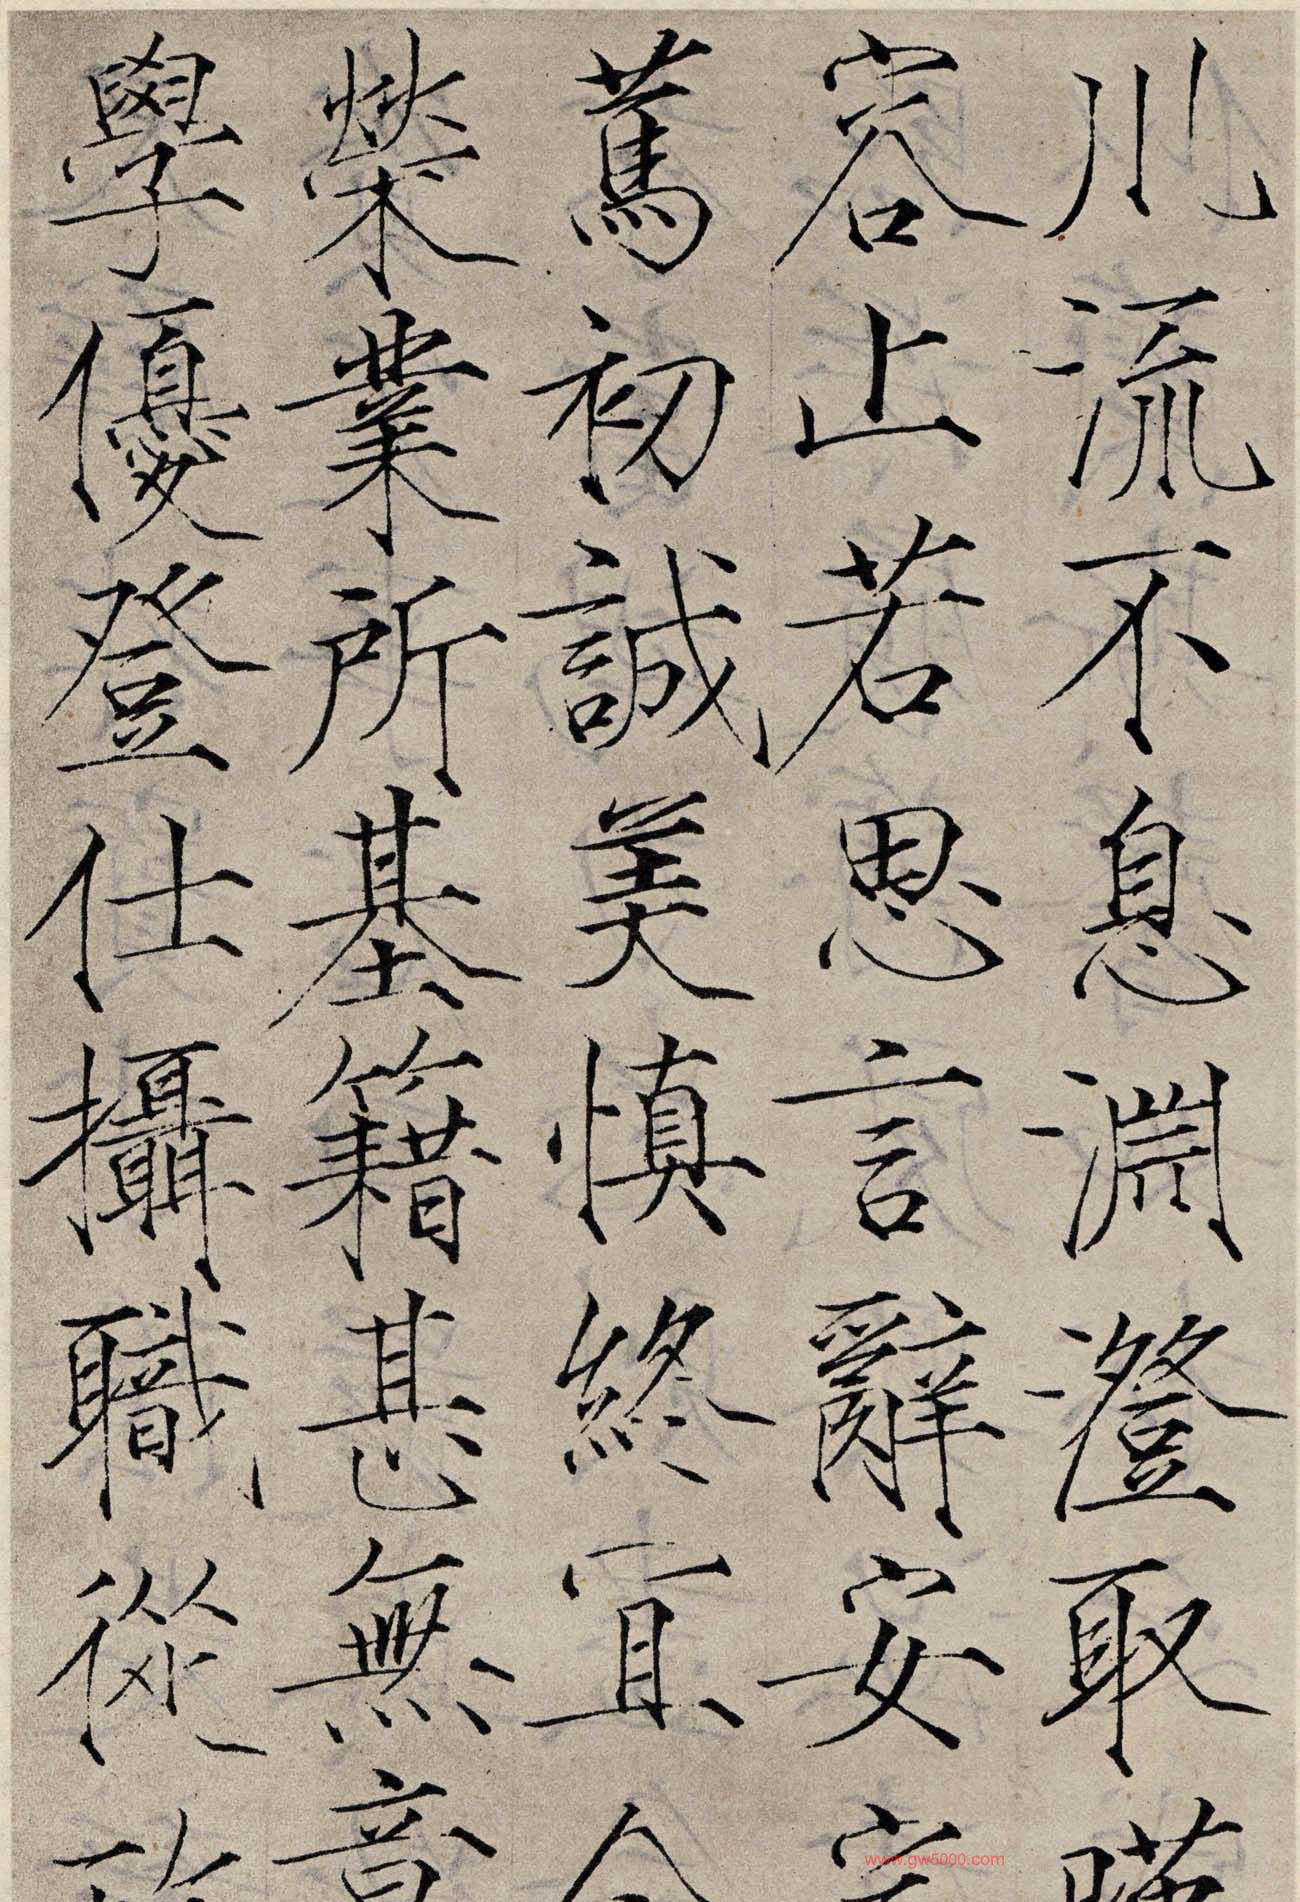 川流不息淵澄取暎
容止若思言辭安定
篤初誠美慎終宜令
榮業所基籍甚無竟
學優登仕攝職從政
www.gw5000.com